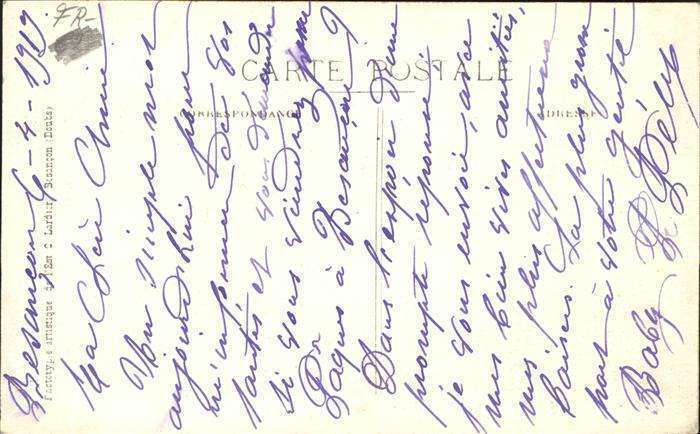 FR-
CARTE POSTALE
CORRESPONDANCE
ADRESSE
Phototypie artistique de l'Est C Lardier, Besançon (Doubs)
Besançon 6-4-1919
Ma Chère Amie
Un simple mot
aujourd'hui pour
m'informer de vos
santés et vous demander
si vous viendrez
Pâques à Besançon ?
Dans l'espoir d'une
prompte réponse
je vous envoie, avec
mes bien vives amitiés,
mes plus affectueux
baisers. La plus gros
pour votre gentil
Baby